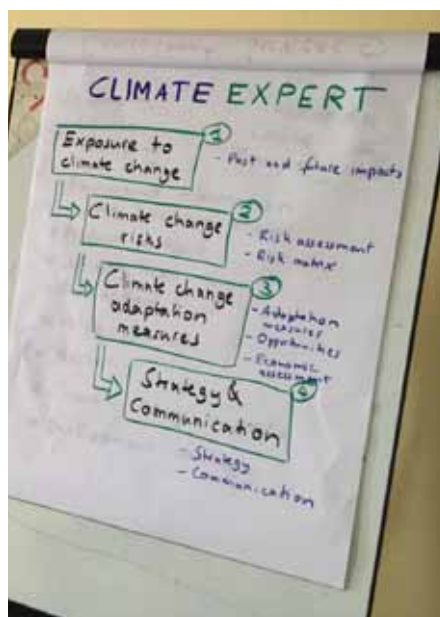 CLIMATE EXPERT
1
Exposure to
climate change
- Past and future impacts
2
Climate change
risks
- Risk assessment
- Risk matrix
3
Climate change
adaptation
measures
- Adaptation
measures
- Opportunities
- Economic
assessment
4
Strategy &
Communication
- Strategy
- Communication